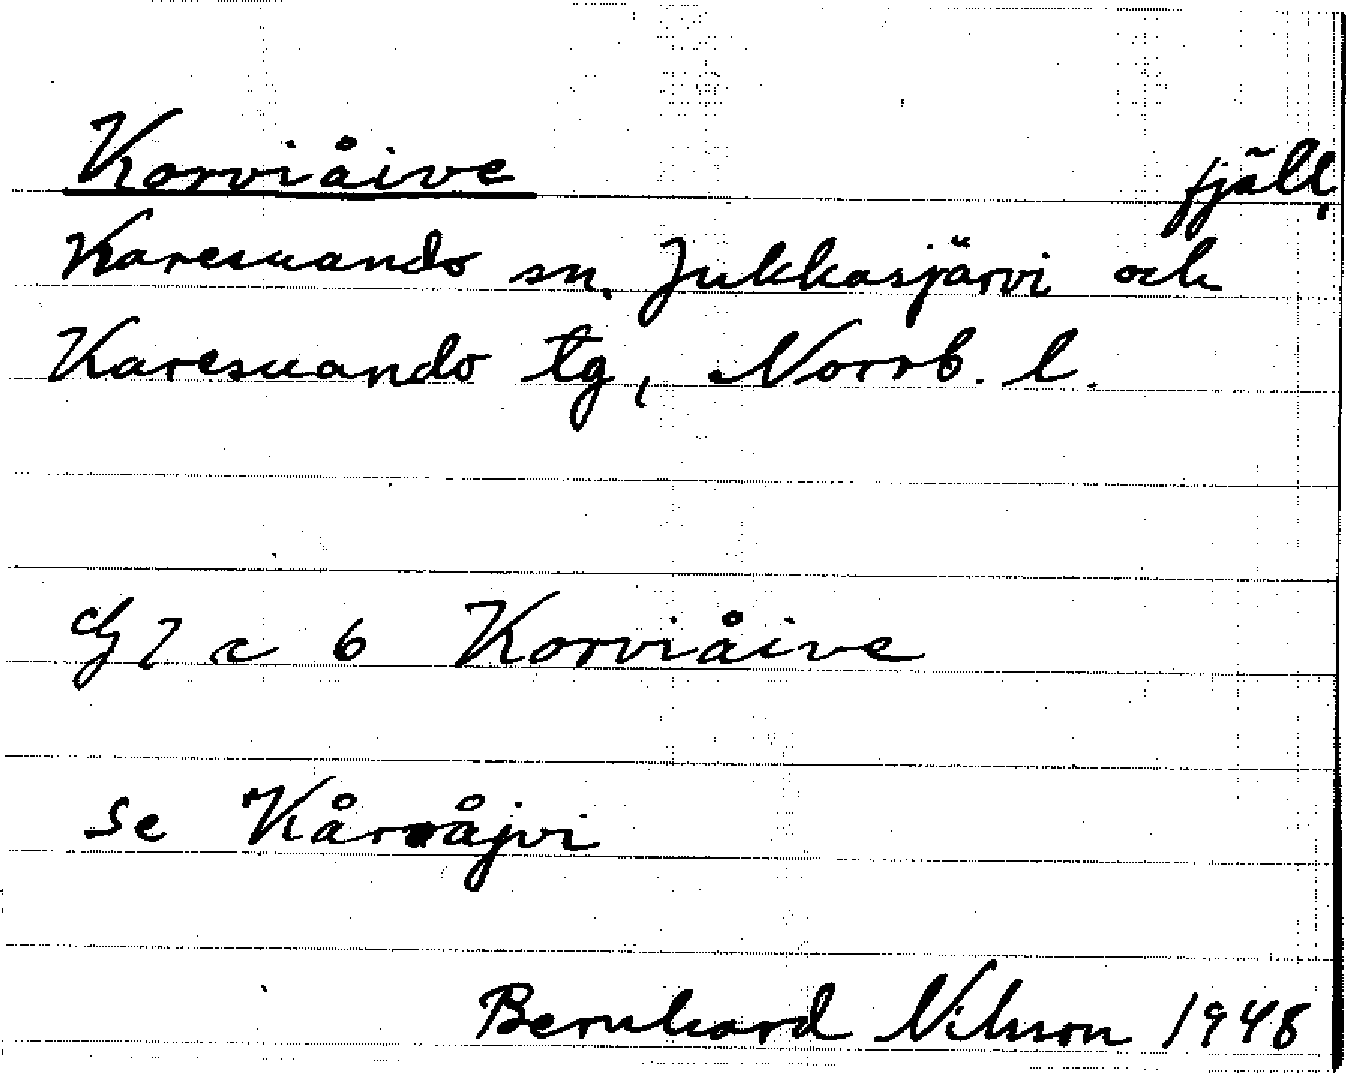 Korviåive fjäll.
Karesuando sn. Jukkasjärvi och
Karesuando tg, Norrb. l.
7 c 6 Korviåive
se
Bernhard Nilsson 1948